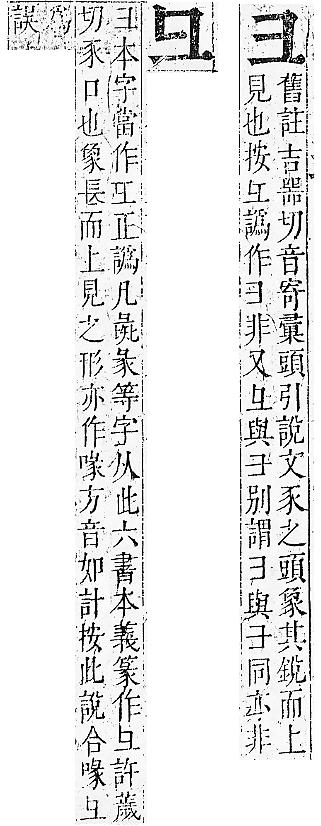 彐
舊註吉器切音寄彙頭引說文豕之頭象其銳而上
見也按彑譌作彐非又彑與彐别謂彐與彐同亦非
彑
彐本字當作彑正譌凡彘彖等字从此六書本義篆作彑許薉
切豕口也象長而上見之形亦作喙方音如計按此說合喙彑